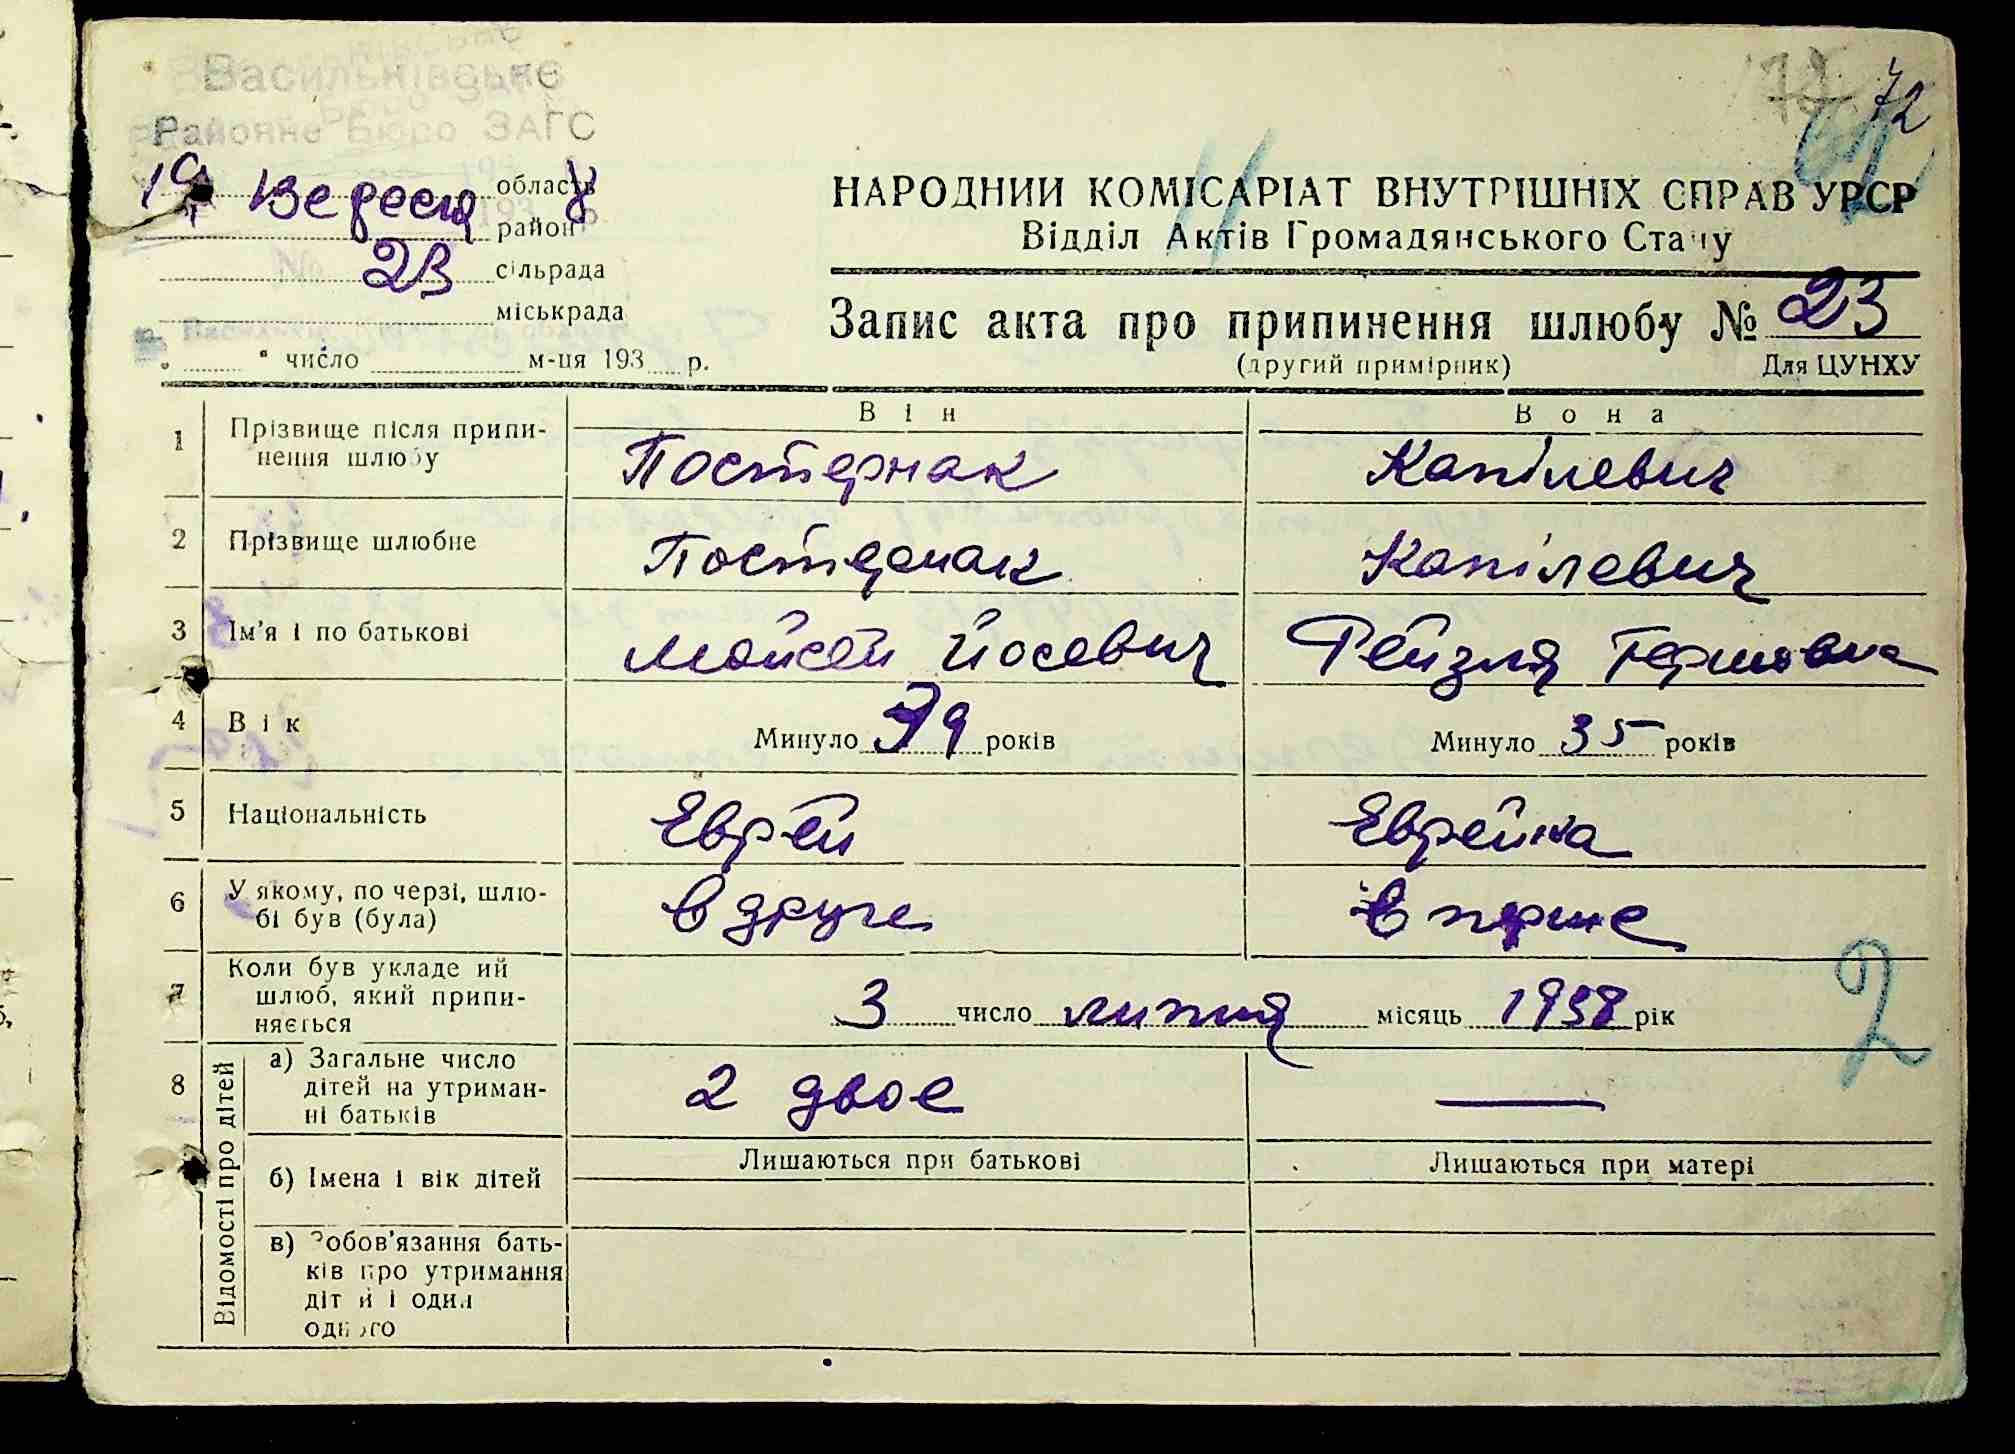 Васильківське
Районне Бюро ЗАГС
19 Вересня 8
область
район
23 сільрада
міськрада
" " число м-ця 193 р.
72
НАРОДНИЙ КОМІСАРІАТ ВНУТРІШНІХ СПРАВ УРСР
Відділ Актів Громадянського Стану
Запис акта про припинення шлюбу № 23
(другий примірник) Для ЦУНХУ
Він Вона
1 Прізвище після припи-
нення шлюбу Постернак Капілевич
2 Прізвище шлюбне Постернак Капілевич
3 Ім'я і по батькові Мойсей Йосевич Рейзля Гершовна
4 Вік Минуло 39 років Минуло 35 років
5 Національність Еврей Еврейка
6 У якому, по черзі, шлю-
бі був (була) в друге в перше
7 Коли був укладе ий
шлюб, який припи-
няється 3 число липня місяць 1938 рік
2
8 Відомості про дітей
а) Загальне число
дітей на утриман-
ні батьків 2 двое —
б) Імена і вік дітей Лишаються при батькові Лишаються при матері
в) Зобов'язання бать-
ків про утримання
діт й і один
одного